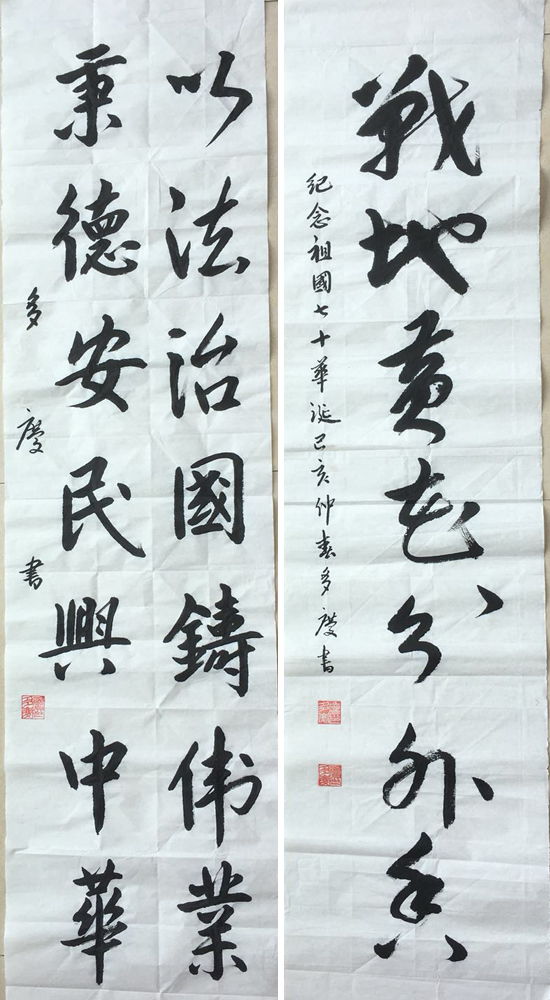 以法治國鑄伟業
秉德安民興中華
多慶書
戰地黄花分外香
纪念祖國七十華诞己亥仲春多慶書